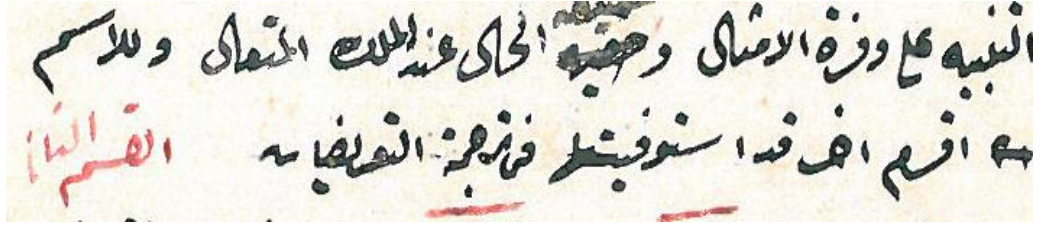 التنبيه على وفرة الامثال وحقيقة الحال عند الملك المتعال وللاسم
اقسام اخر قد استوفيتها في ترجمة التعريفات القسم الثاني